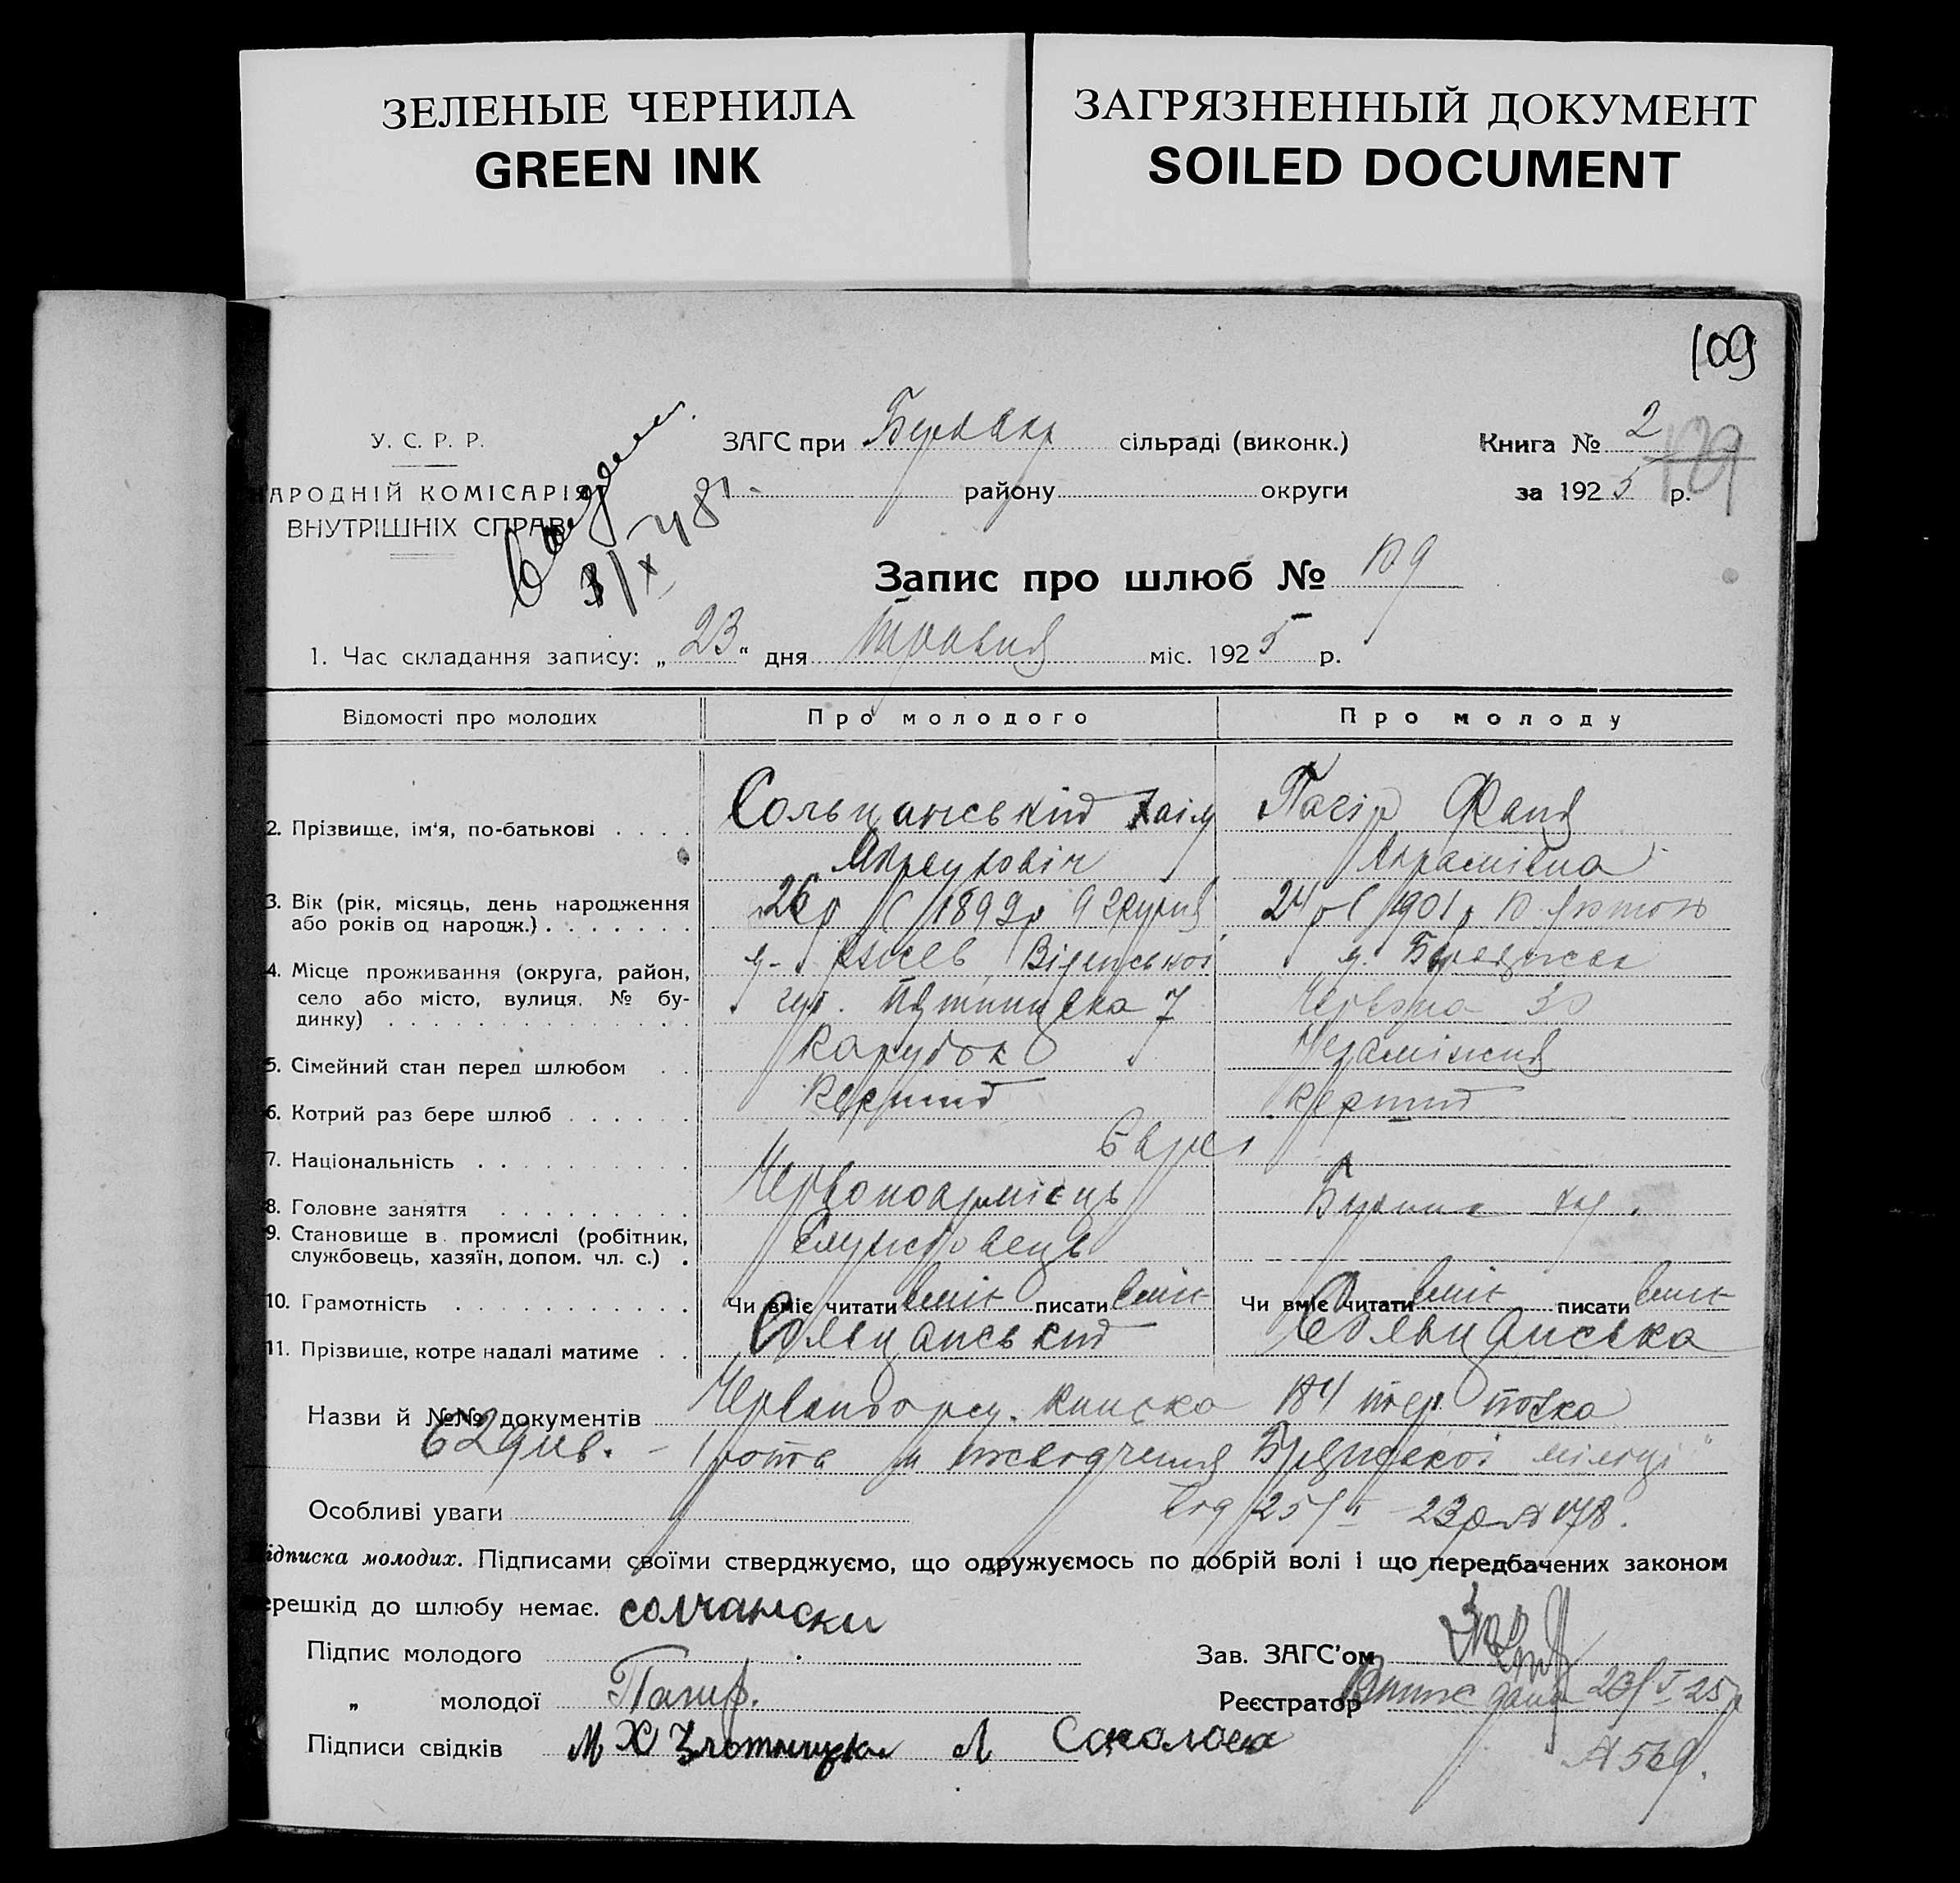 ЗЕЛЕНЫЕ ЧЕРНИЛА
GREEN INK
ЗАГРЯЗНЕННЫЙ ДОКУМЕНТ
SOILED DOCUMENT
109
У. С. Р. Р.
АРОДНІЙ КОМІСАРІЯ
ВНУТРІШНІХ СПРАВ
ЗАГС при сільраді (виконк.)
району округи
Книга № 2
за 1925 р.
Запис про шлюб № 109
1. Час складання запису: „23" дня Травня міс. 1925 р.
Відомості про молодих
Про молодого
Про молоду
2. Прізвище, ім'я, по-батькові
Сольцанський Хаім
Пагір Фаня
Абрамівна
3. Вік (рік, місяць, день народження
або років од народж.)
26 р 1899р 9 грудня
24 р 1901 р 10 лютого
4. Місце проживання (округа, район,
село або місто, вулиця, № бу-
динку)
Віленської
7
м. Бердичев
30
5. Сімейний стан перед шлюбом
Парубок
Незаміжня
6. Котрий раз бере шлюб
Перший
Перший
7. Національність
Євреї
8. Головне заняття
Червоноармієць
9. Становище в промислі (робітник,
службовець, хазяїн, допом. чл. с.)
Службовець
10. Грамотність
Чи вміє читати вміє писати вміє
Чи вміє читати вміє писати вміє
11. Прізвище, котре надалі матиме
Сольцанський
Сольцанська
Назви й №№ документів
книжка 184 полка
62 див. – 1 рота посвідчення міліції
Особливі уваги
від 25/II – 23р №
ідписка молодих. Підписами своїми стверджуємо, що одружуємось по добрій волі і що передбачених законом
ерешкід до шлюбу немає.
Підпис молодого
солчански
„ молодої
Пагир.
Підписи свідків
М Х Злотницки Л Соколова
Зав. ЗАГС'ом
Реєстратор
дана 23/V 25р
№ 569.